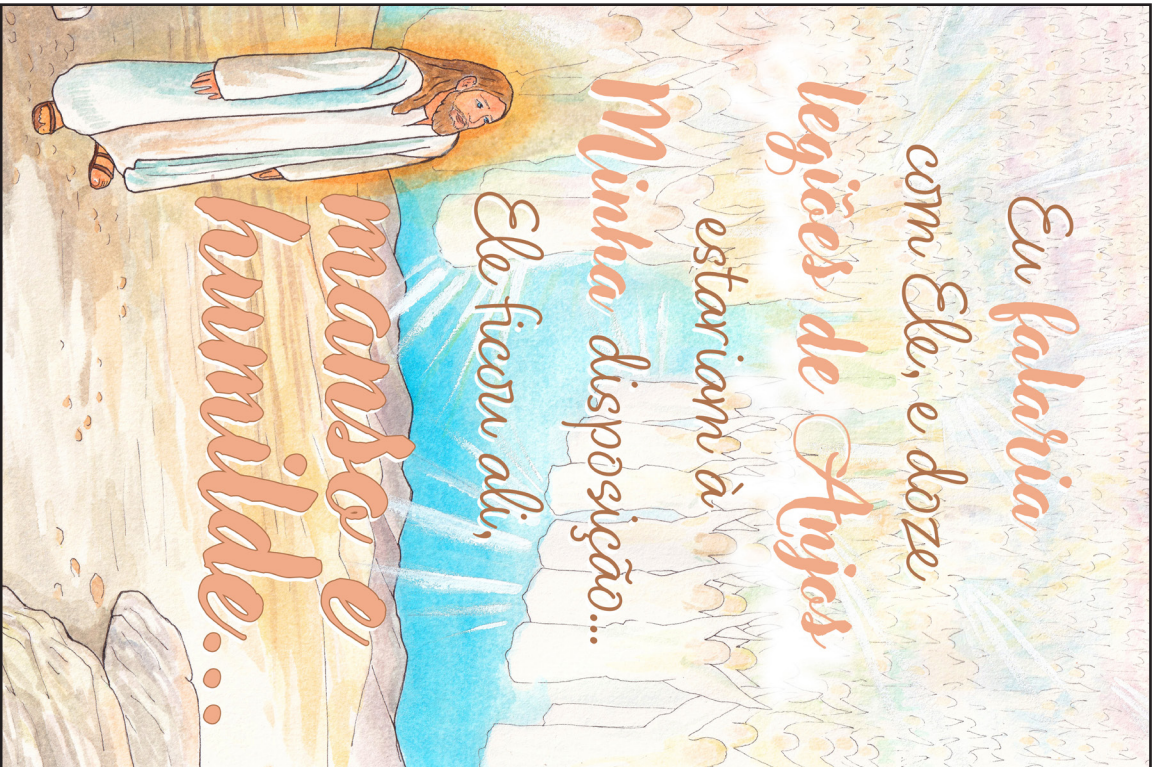 Eu falaria
com Ele, e doze
legiões de Anjos
estariam à
Minha disposição...
Ele ficou ali,
manso e
humilde...